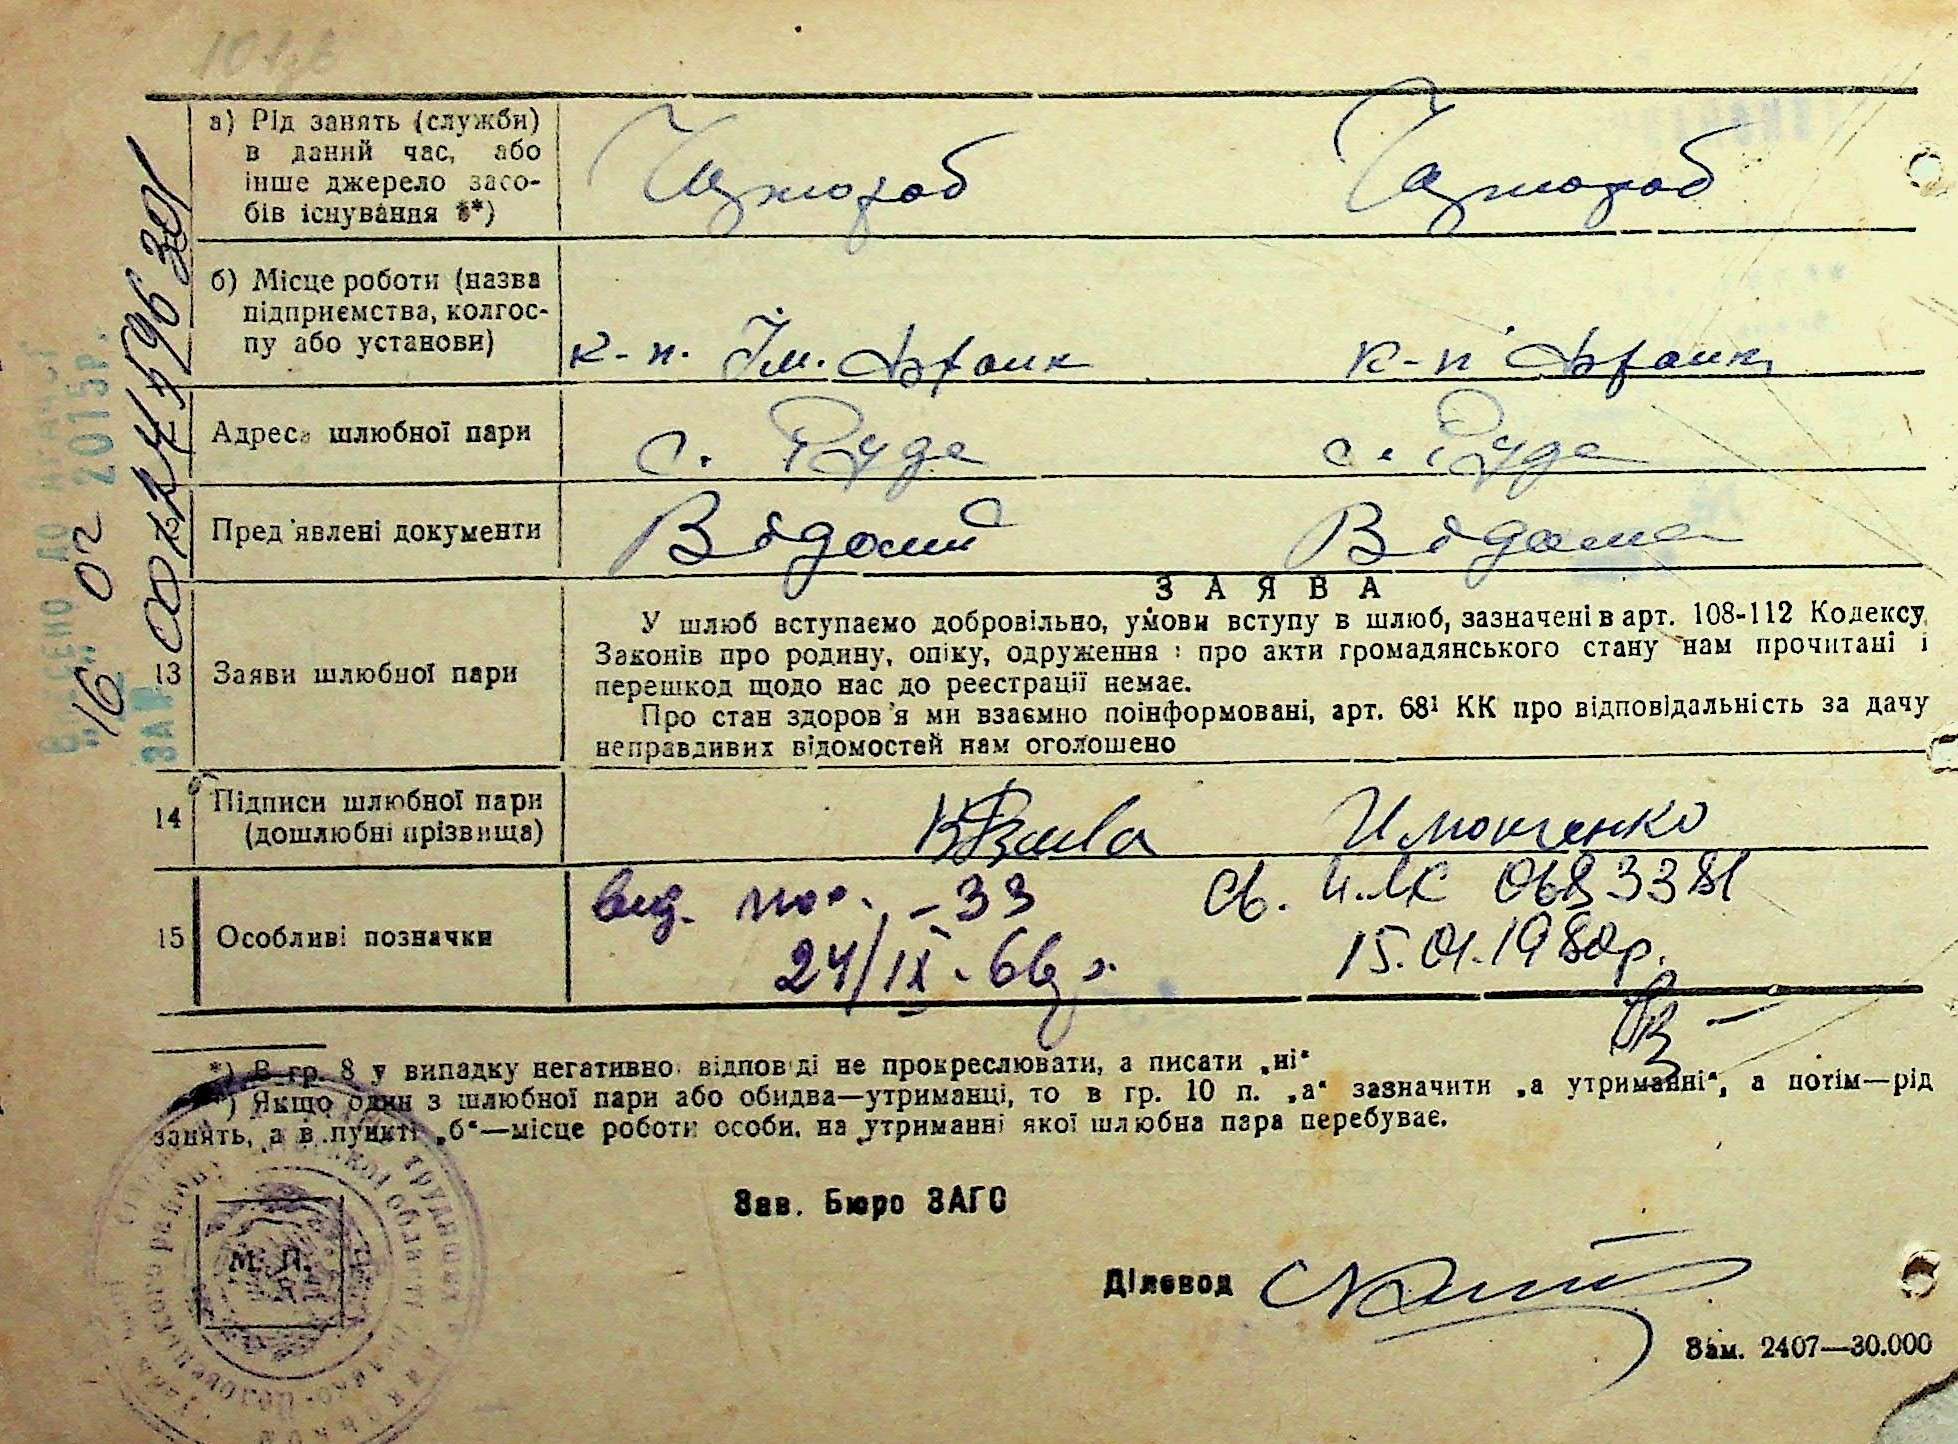 а) Рід занять (служби)
в даний час, або
інше джерело засо-
бів існування **)
Чорнороб Чорнороб
б) Місце роботи (назва
підприємства, колгос-
пу або установи)
к-п. Ім. Франк к-п Франк
11 Адреса шлюбної пари
с. Руда с. Руда
12 Пред'явлені документи
Відомий Відома
ЗАЯВА
У шлюб вступаємо добровільно, умови вступу в шлюб, зазначені в арт. 108-112 Кодексу
Законів про родину, опіку, одруження і про акти громадянського стану нам прочитані і
перешкод щодо нас до реєстрації немає.
13 Заяви шлюбної пари
Про стан здоров'я ми взаємно поінформовані, арт. 68¹ КК про відповідальність за дачу
неправдивих відомостей нам оголошено
14 Підписи шлюбної пари
(дошлюбні прізвища)
15 Особливі позначки
- 33
24/IX - 66 р.
15.01.1980р.
*) В гр. 8 у випадку негативної відповіді не прокреслювати, а писати „ні“
*) Якщо один з шлюбної пари або обидва—утриманці, то в гр. 10 п. „а“ зазначити „а утриманні“, а потім—рід
занять, а в пункті „б“—місце роботи особи, на утриманні якої шлюбна пара перебуває.
Зав. Бюро ЗАГС
М. П.
Діловод
Зам. 2407—30.000
16 02 2015р.